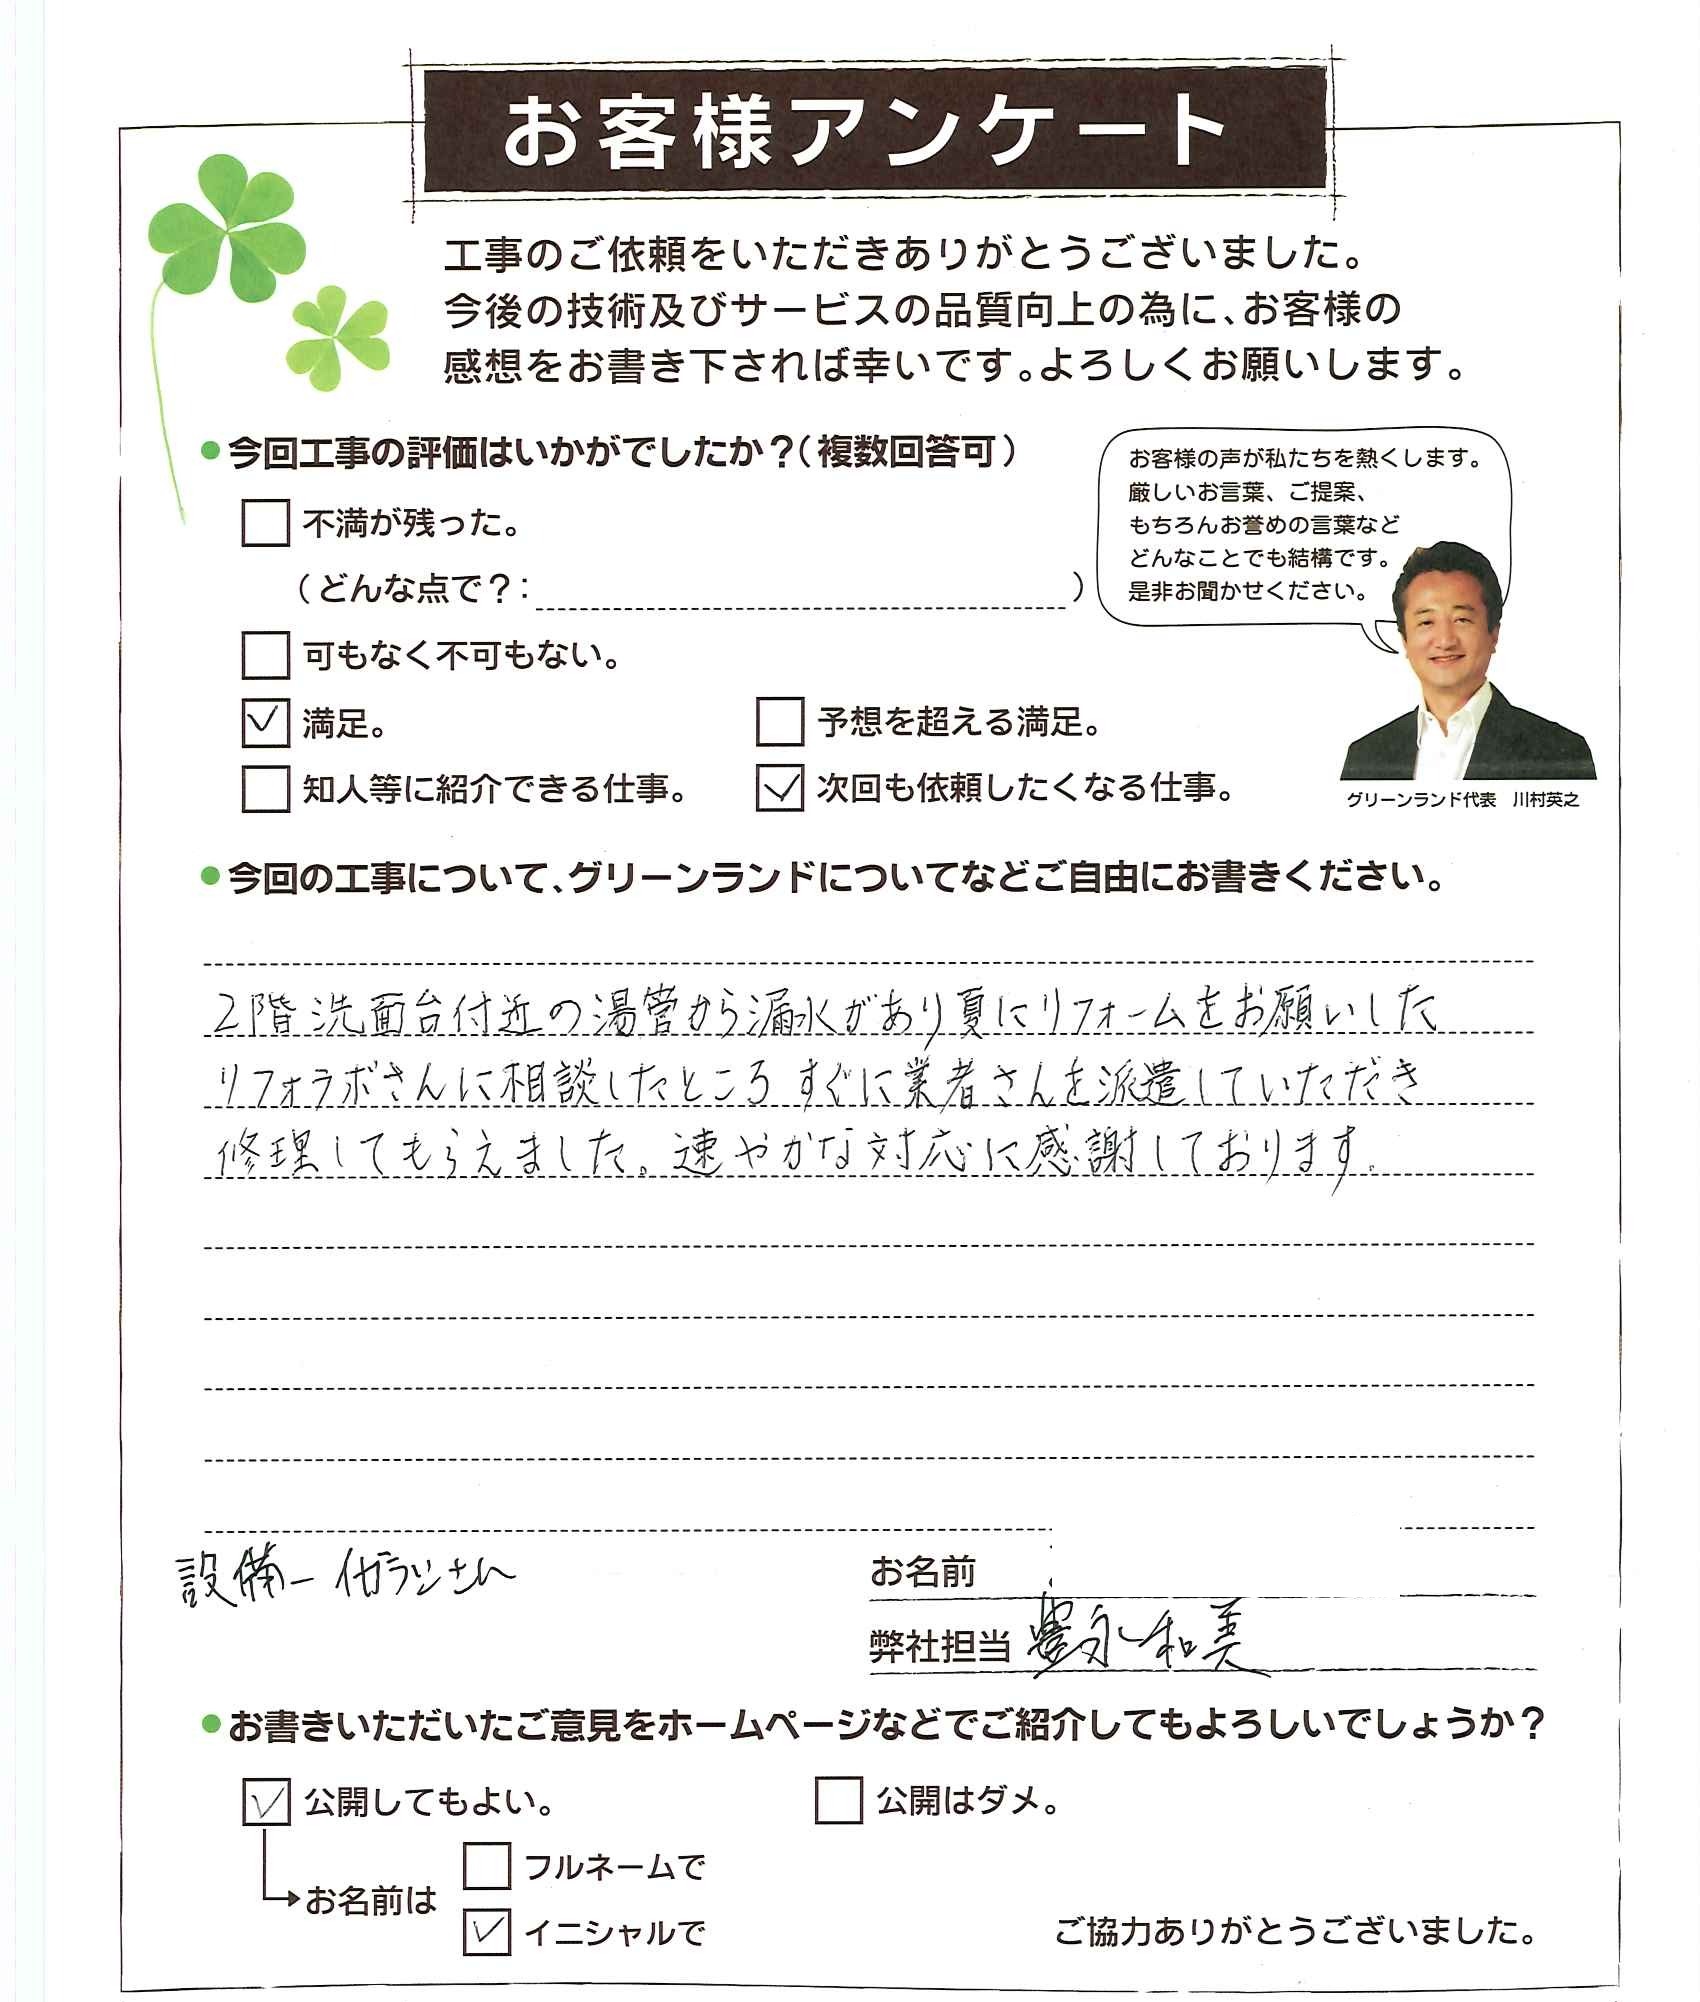 お客様アンケート
工事のご依頼をいただきありがとうございました。
今後の技術及びサービスの品質向上の為に、お客様の
感想をお書き下されば幸いです。よろしくお願いします。
●今回工事の評価はいかがでしたか?(複数回答可)
お客様の声が私たちを熱くします。
厳しいお言葉、ご提案、
もちろんお誉めの言葉など
どんなことでも結構です。
是非お聞かせください。
不満が残った。
(どんな点で?: )
可もなく不可もない。
満足。 予想を超える満足。
知人等に紹介できる仕事。 次回も依頼したくなる仕事。
グリーンランド代表 川村英之
●今回の工事について、グリーンランドについてなどご自由にお書きください。
2階洗面台付近の湯管から漏水があり夏にリフォームをお願いした
リフォラボさんに相談したところすぐに業者さんを派遣していただき
修理してもらえました。速やかな対応に感謝しております。
設備ー さん
お名前
弊社担当 豊永和美
●お書きいただいたご意見をホームページなどでご紹介してもよろしいでしょうか?
公開してもよい。 公開はダメ。
お名前は
フルネームで
イニシャルで
ご協力ありがとうございました。